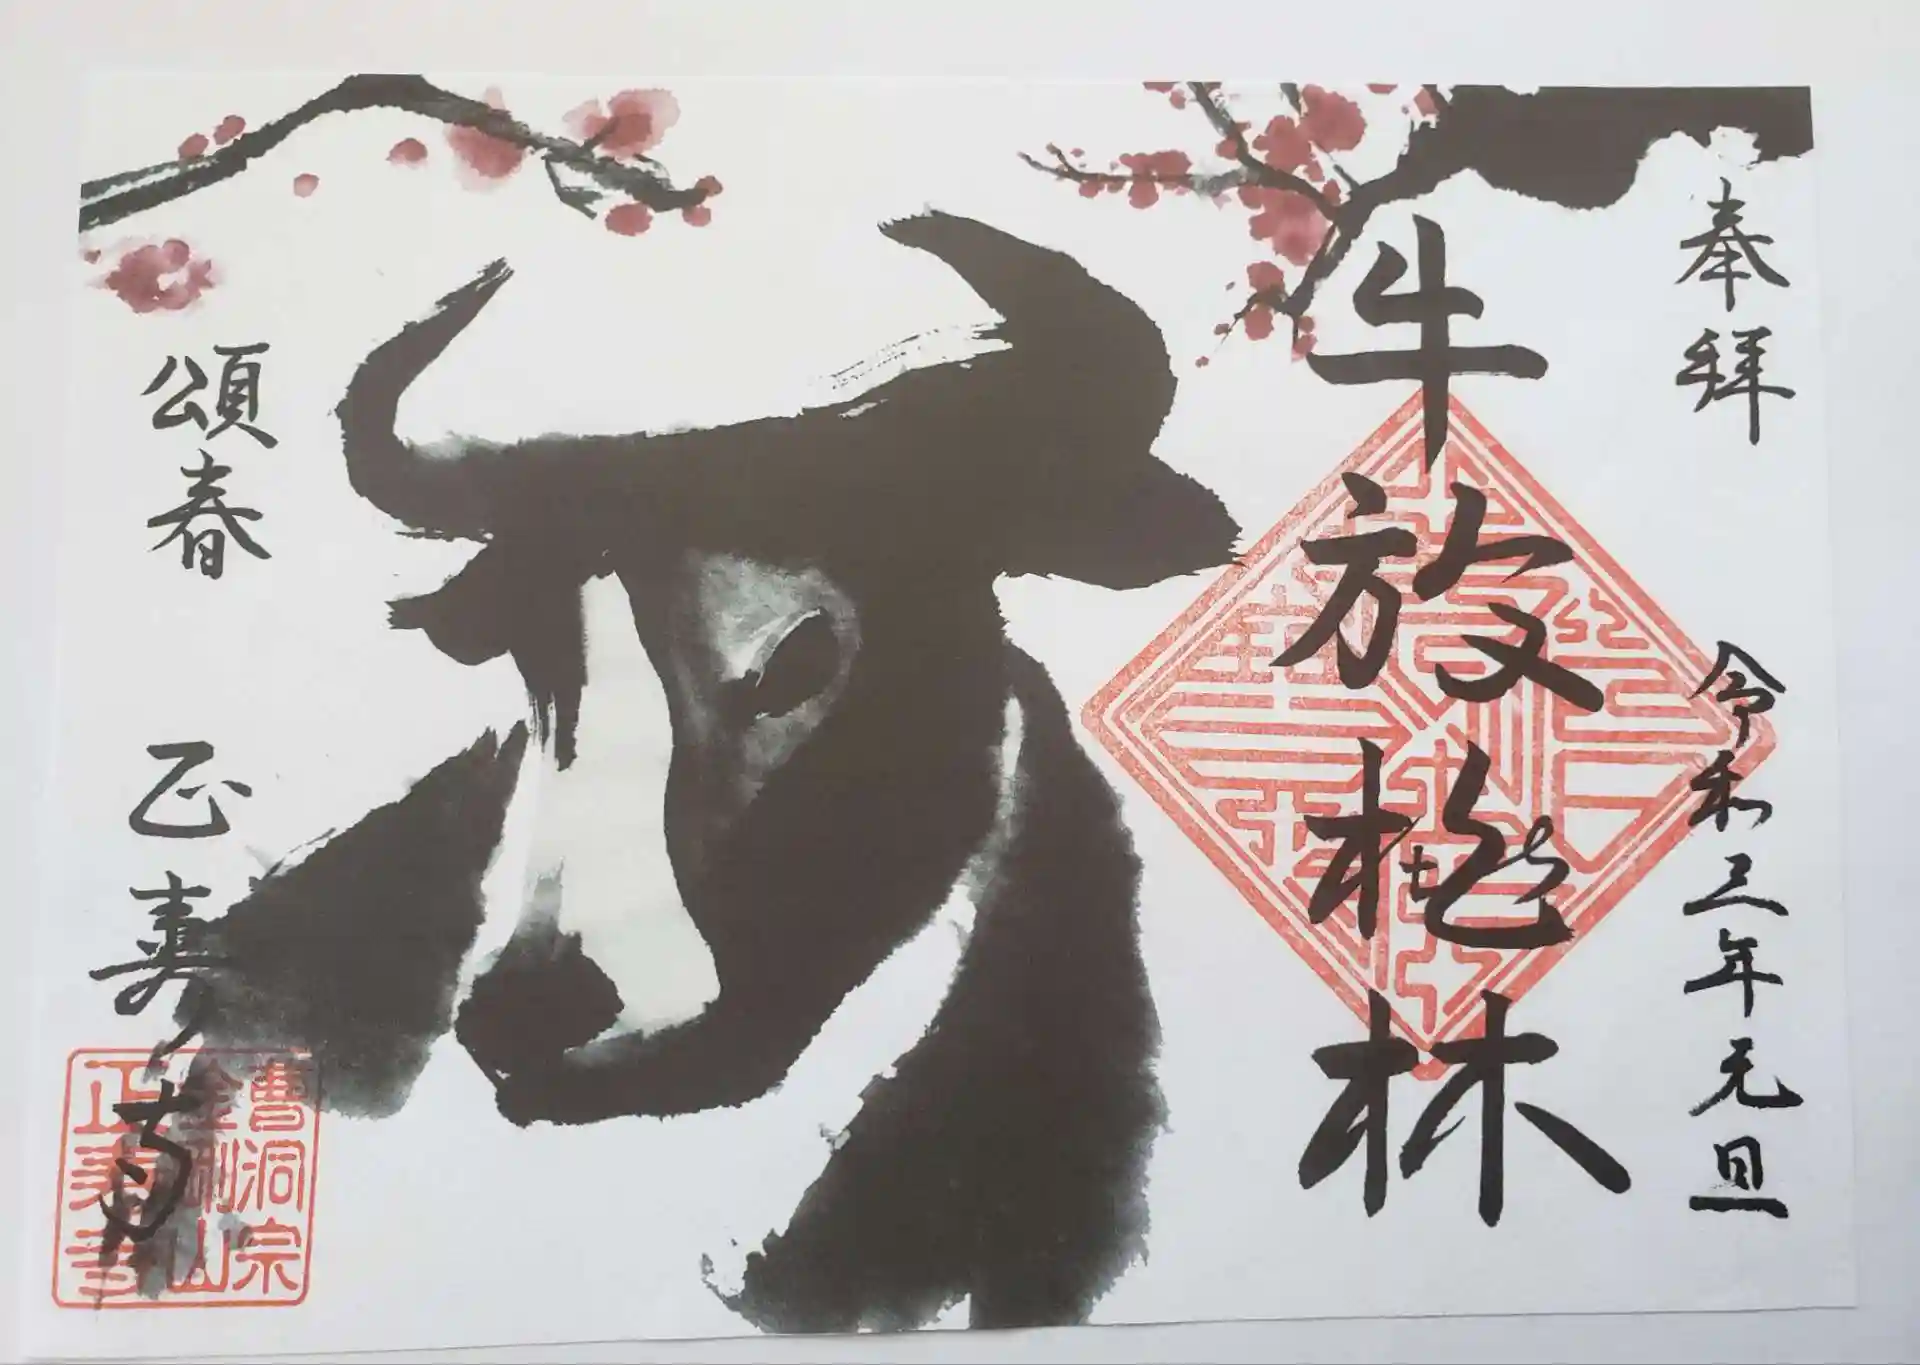 奉拝
令和三年元旦
牛放桃林
頌春
正寿寺
曹洞宗
金剛山
正寿寺